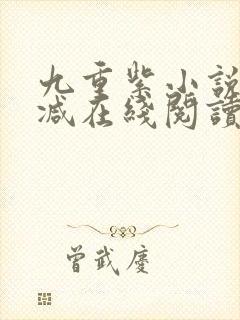 九重紫小說
減在綫閱讀
曾武慶